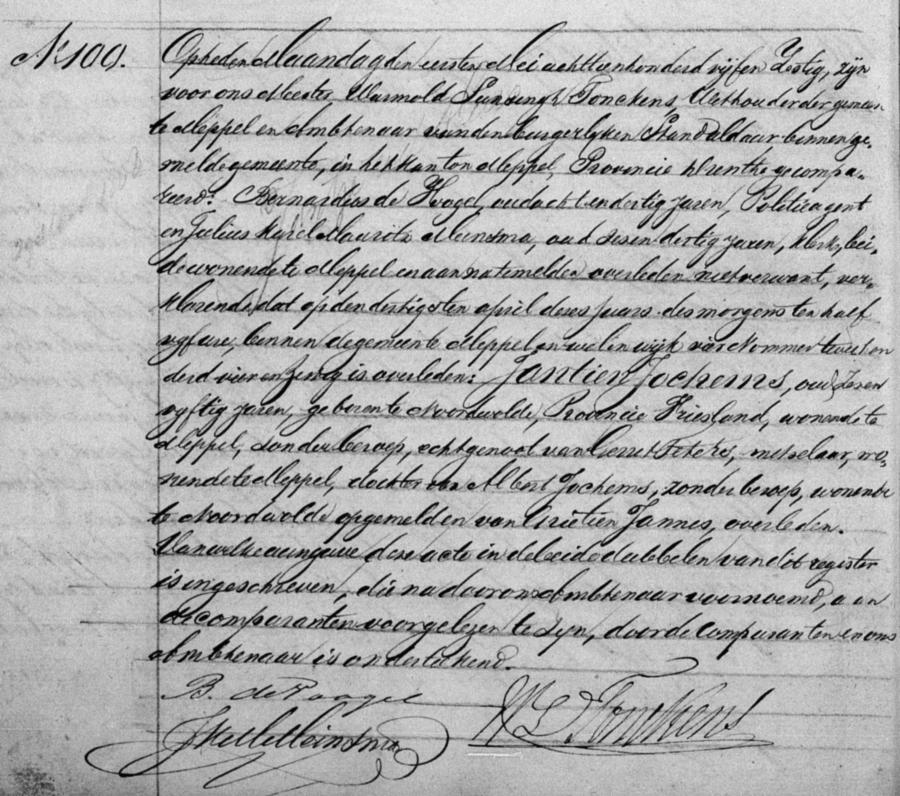 No 100.
Op heden Maandag den eersten Mei achttienhonderd vijf en Zestig, zijn
voor ons Meester Warmold Lunsingh Tonckens, Wethouder der gemeen-
te Meppel en Ambtenaar van den burgerlijken Stand aldaar binnen ge-
melde gemeente, in het kanton Meppel, Provincie Drenthe gecompa-
reerd: Bernardus de Hogel, oud acht en dertig jaren, Politieagent
en Julius Karel Maurits Meinsma, oud zesen dertig jaren, klerk, bei-
de wonende te Meppel en aan na temelden overleden niet verwant, ver-
klarende, dat op den dertigsten april dezes jaars des morgens ten half
vijf ure, binnen de gemeente Meppel en wel in wijk vier Nommer twee hon
derd vier en zestig is overleden: Jantien Jochems, oud Zeven
vijftig jaren, geboren te Noordwolde, Provincie Friesland, wonende te
Meppel, zonder beroep, echtgenoot van Gerrit Peters, metselaar, wo-
nende te Meppel, dochter van Albert Jochems, zonder beroep, wonende
te Noordwolde opgemeld en van Grietien Jannes, overleden.
Van welke aangave deze acte in de beide dubbelen van dit register
is ingeschreven, die na door ons Ambtenaar voornoemd, aan
de comparanten voorgelezen te zijn, door de Comparanten en ons
Ambtenaar is onderteekend.
B. de
JKMMeinsma
WLTonckens